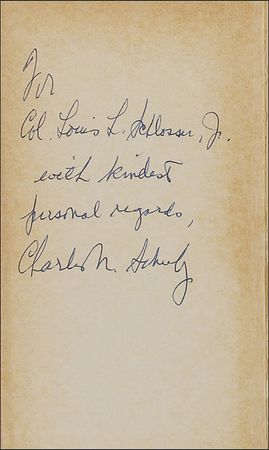 For
Col. Louis L. Schlosser, Jr.
with kindest
personal regards,
Charles N. Schulz